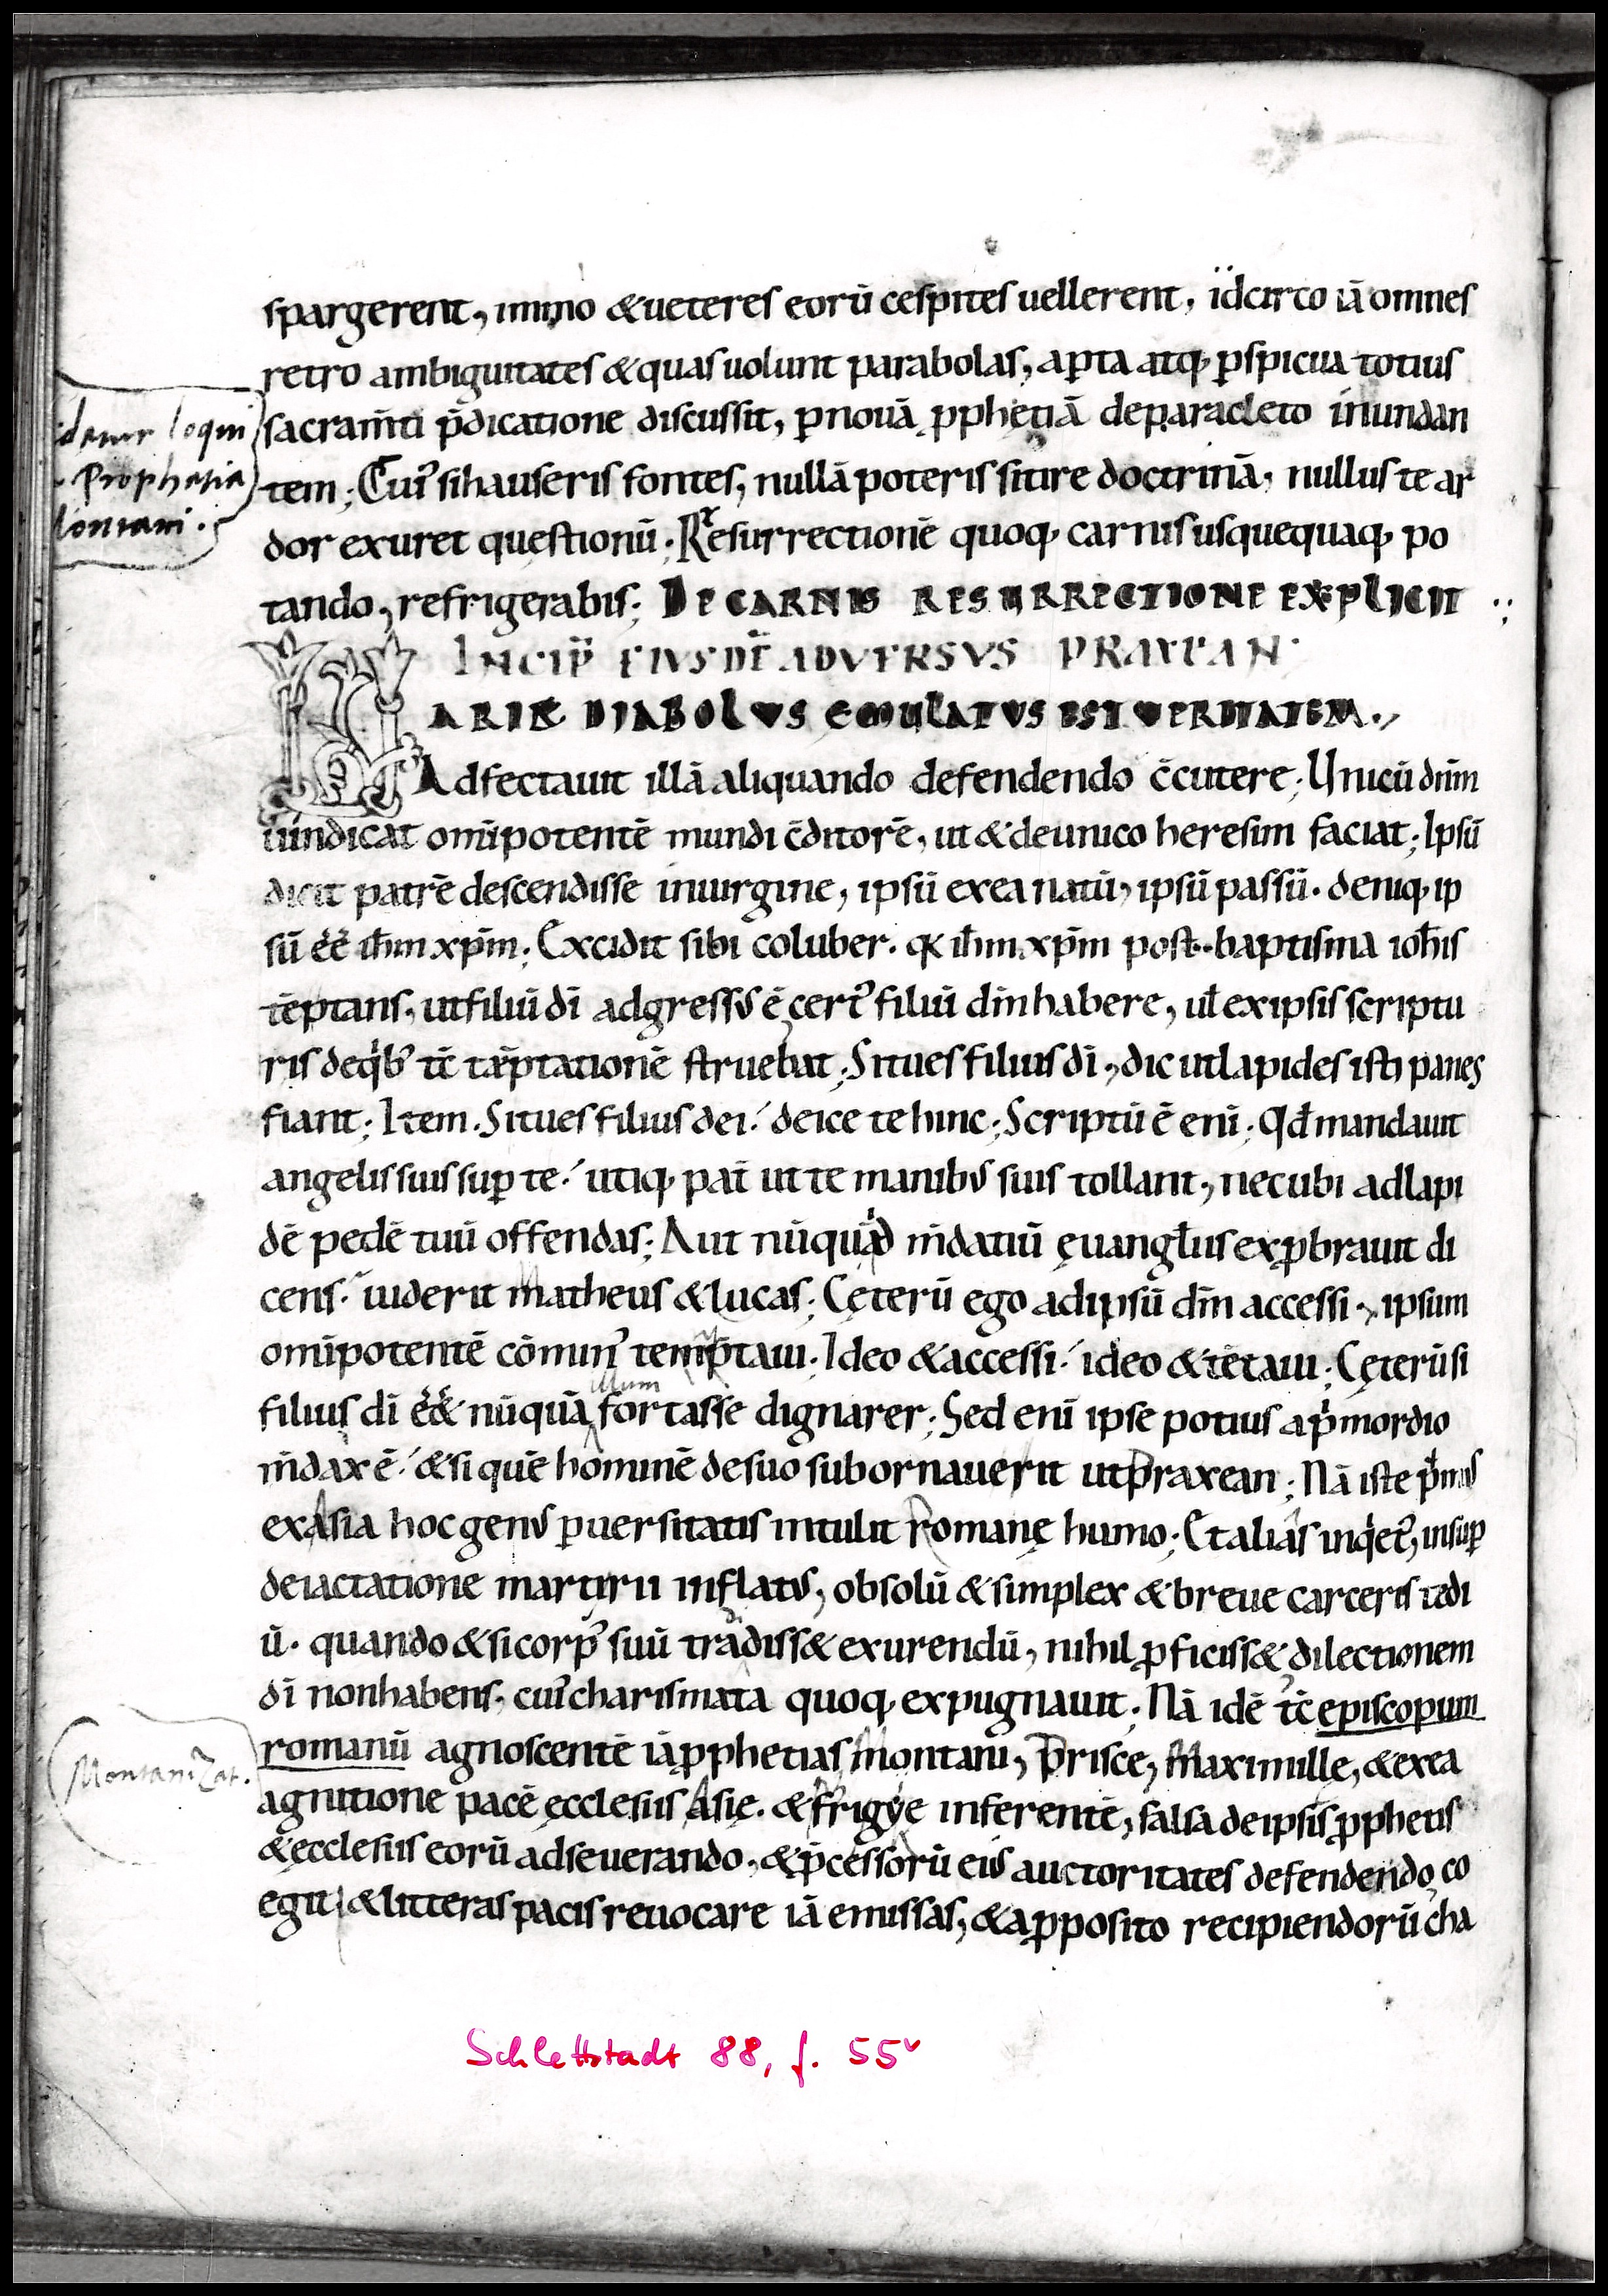 spargerent, immo & ueteres eorū cespites uellerent, idcirco iā omnes
retro ambiguitates & quas uolunt parabolas, apta atq; pspicua totius
sacram̄ti p̄dicatione discussit, p nouā pphetiā de paracleto inundan
tem; Cui' si hauseris fontes, nullā poteris sitire doctrinā, nullus te ar
dor exuret questionū; Resurrectionē quoq; carnis usquequaq; po
tando, refrigerabis; DE CARNIS RESURRECTIONE EXPLICIT
INCIP̄ EIUSDĒ ADVERSVS PRAXEAN
VARIE DIABOLVS EMULATVS EST VERITATEM.
Adfectauit illā aliquando defendendo c̄cutere; Unicū dn̄m
uindicat om̄ipotentē mundi c̄ditorē, ut & de unico heresim faciat; Ipsū
dicit patrē descendisse in uirgine, ipsū ex ea natū, ipsū passū. deniq; ip
sū ēē ih̄m xp̄m; Excidit sibi coluber. q ih̄m xp̄m post baptisma ioh̄is
tēptans, ut filiū dī adgressus ē cert' filiū dm̄ habere, ul̄ ex ipsis scriptu
ris de qib' tc̄ tēptationē struebat; Si tu es filius dī, dic ut lapides isti panes
fiant; Item. Si tu es filius dei. deice te hinc; Scriptū ē enī; Qd̄ mandauit
angelis suis sup te. utiq; pat̄ ut te manibus suis tollant, necubi ad lapi
dē pedē tuū offendas; Aut nūquid m̄datiū ęuangl̄iis expbrauit di
cens. uiderit matheus & lucas; Cęterū ego ad ipsū dm̄ accessi, ipsum
om̄ipotentē cōmin' temptaui. Ideo & accessi. ideo & tētaui; Cęterū si
filius dī ēē& nūquā illum fortasse dignarer; Sed enī ipse potius a p'mordio
m̄dax ē. & si quē hominē de suo subornauerit ut praxean; Nā iste p'mus
ex Asia hoc genus puersitatis intulit Romanę humo; Et alias inq'et', insup
de iactatione martirii inflatus, ob solū & simplex & breue carceris tedi
ū. quando & si corp' suū tradidiss& exurendū, nihil pficiss& dilectionem
dī non habens. cui' charismata quoq; expugnauit. Nā idē tc̄ episcopum
romanū agnoscentē iā pphetias Montani, Prisce, Maximille, & ex ea
agnitione pacē ęcclesiis Asię. & frigye inferentē, falsa de ipsis pphetis
& ęcclesiis eorū adseuerando, & p̄cessorū eius auctoritates defendendo, co
egit & litteras pacis reuocare iā emissas, & a pposito recipiendorū cha
loqui
Prophetia
Montani.
Montanizat.
Schlettstadt 88, f. 55v